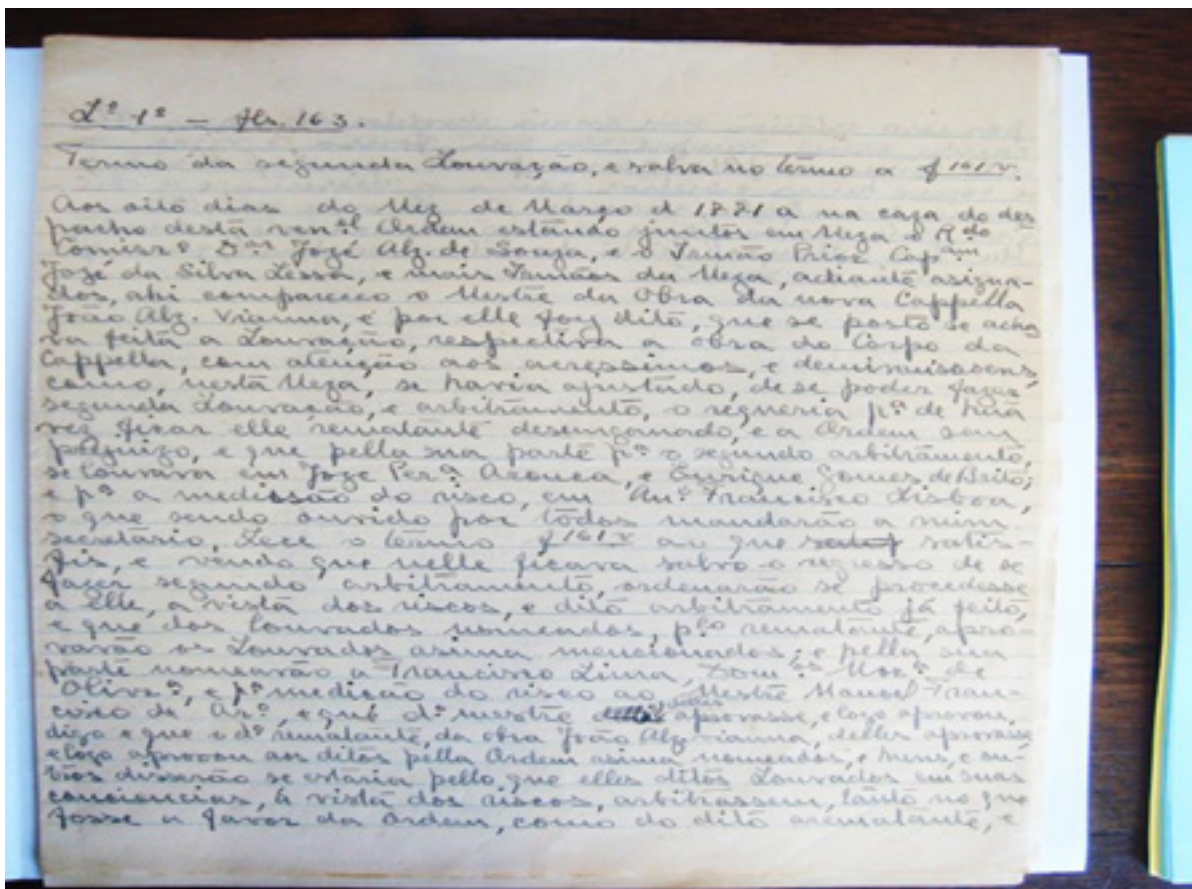 Lº 1º — fls. 163.
Termo da segunda Louvação, e salva no termo a f 161 v.
Aos oito dias do Mez de Março d 1771 a na caza do des
pacho desta ven.el Ordem estando juntos em Meza o R.do
Comissrº D.or Jozé Alz. de Souza, e o Irmão Prior Cap.am
José da Silva Lessa, e mais Irmãos da Meza, adiante asigna-
dos, ahi compareceo o Mestre da Obra da nova Cappella
João Alz. Vianna, e por elle foy dito, que se posto se acha
va feita a Louvação, respectiva a obra do Corpo da
Cappella, com atenção aos acressimos, e
como, nesta Meza, se havia ajustado, de se poder fazer
segunda Louvação, e arbitramento, o requeria p.ª de hua
vez ficar elle rematante desenganado, e a Ordem sem
prejuizo, e que pella sua parte p.ª o segundo arbitramento,
se louvava em Joze Per.ª Arouca, e Enrique Gomes de Brito;
e p.ª a medissão do risco, em An.º Francisco Lisboa,
o que sendo ouvido por todos mandarão a mim
secretario, Lece o termo f 161 v ao que satis-
fis, e vendo que nelle ficava salvo o regresso de se
fazer segundo arbitramento, ordenarão se procedesse
a elle, a vista dos riscos, e dito arbitramento já feito,
e que dos Louvados nomeados, p.lo rematante, apro-
varão os Louvados asima mencionados; e pella sua
parte nomearão a Francisco Lima, Dom.os Mor.ª de
Olivr.ª, e p.ª medição do risco ao Mestre Manoel Fran-
cisco de Ar.º, e que d.º mestre aprovasse, e logo aprovou,
digo e que o d.º rematante, da obra João Alz Vianna, delles aprovasse
e logo aprovou aos ditos pella Ordem asima nomeados, e huns, e ou-
tros disserão se estaria pello que elles ditos Louvados em suas
conciencias, à vista dos riscos, arbitrassem, tanto no que
fosse a favor da Ordem, como do dito arematante, e